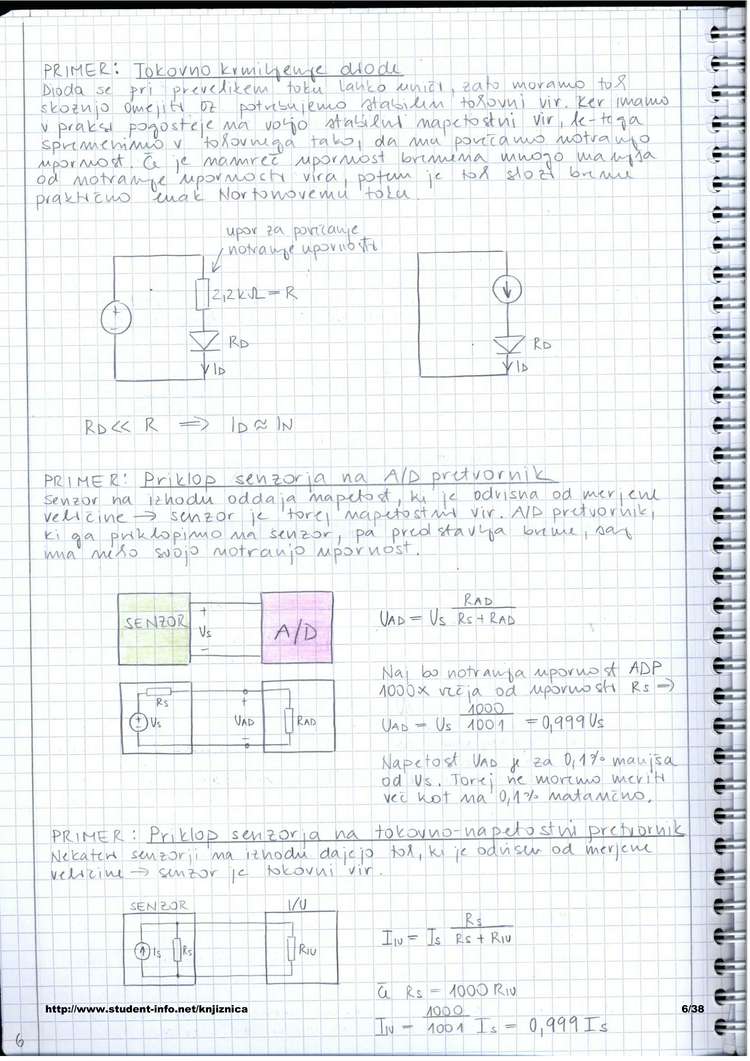 PRIMER: Tokovno krmiljenje diode
Dioda se pri prevelikem toku lahko uniči, zato moramo tok
skoznjo omejiti oz potrebujemo stabilen tokovni vir. Ker imamo
v praksi pogosteje na voljo stabilni napetostni vir, le-tega
spremenimo v tokovnega tako, da mu povečamo notranjo
upornost. Če je namreč upornost bremena mnogo manjša
od notranje upornosti vira, potem je tok skozi breme
praktično enak Nortonovemu toku.
upor za povečanje
notranje upornosti
2,2kΩ = R
RD
ID
RD
ID
RD << R ⇒ ID ≈ IN
PRIMER: Priklop senzorja na A/D pretvornik
Senzor na izhodu oddaja napetost, ki je odvisna od merjene
veličine → senzor je torej napetostni vir. A/D pretvornik,
ki ga priklopimo na senzor, pa predstavlja breme, saj
ima neko svojo notranjo upornost.
SENZOR + Us - A/D
UAD = Us RAD / (Rs + RAD)
Rs
Us
+ UAD -
RAD
Naj bo notranja upornost ADP
1000x večja od upornosti Rs →
UAD = Us 1000/1001 = 0,999 Us
Napetost UAD je za 0,1% manjša
od Us. Torej ne moremo meriti
več kot na 0,1% natančno.
PRIMER: Priklop senzorja na tokovno-napetostni pretvornik
Nekateri senzorji na izhodu dajejo tok, ki je odvisen od merjene
veličine → senzor je tokovni vir.
SENZOR I/U
Is Rs RIU
IIU = Is Rs / (Rs + RIU)
če Rs = 1000 RIU
IIU = 1000/1001 Is = 0,999 Is
http://www.student-info.net/knjiznica 6/38
6